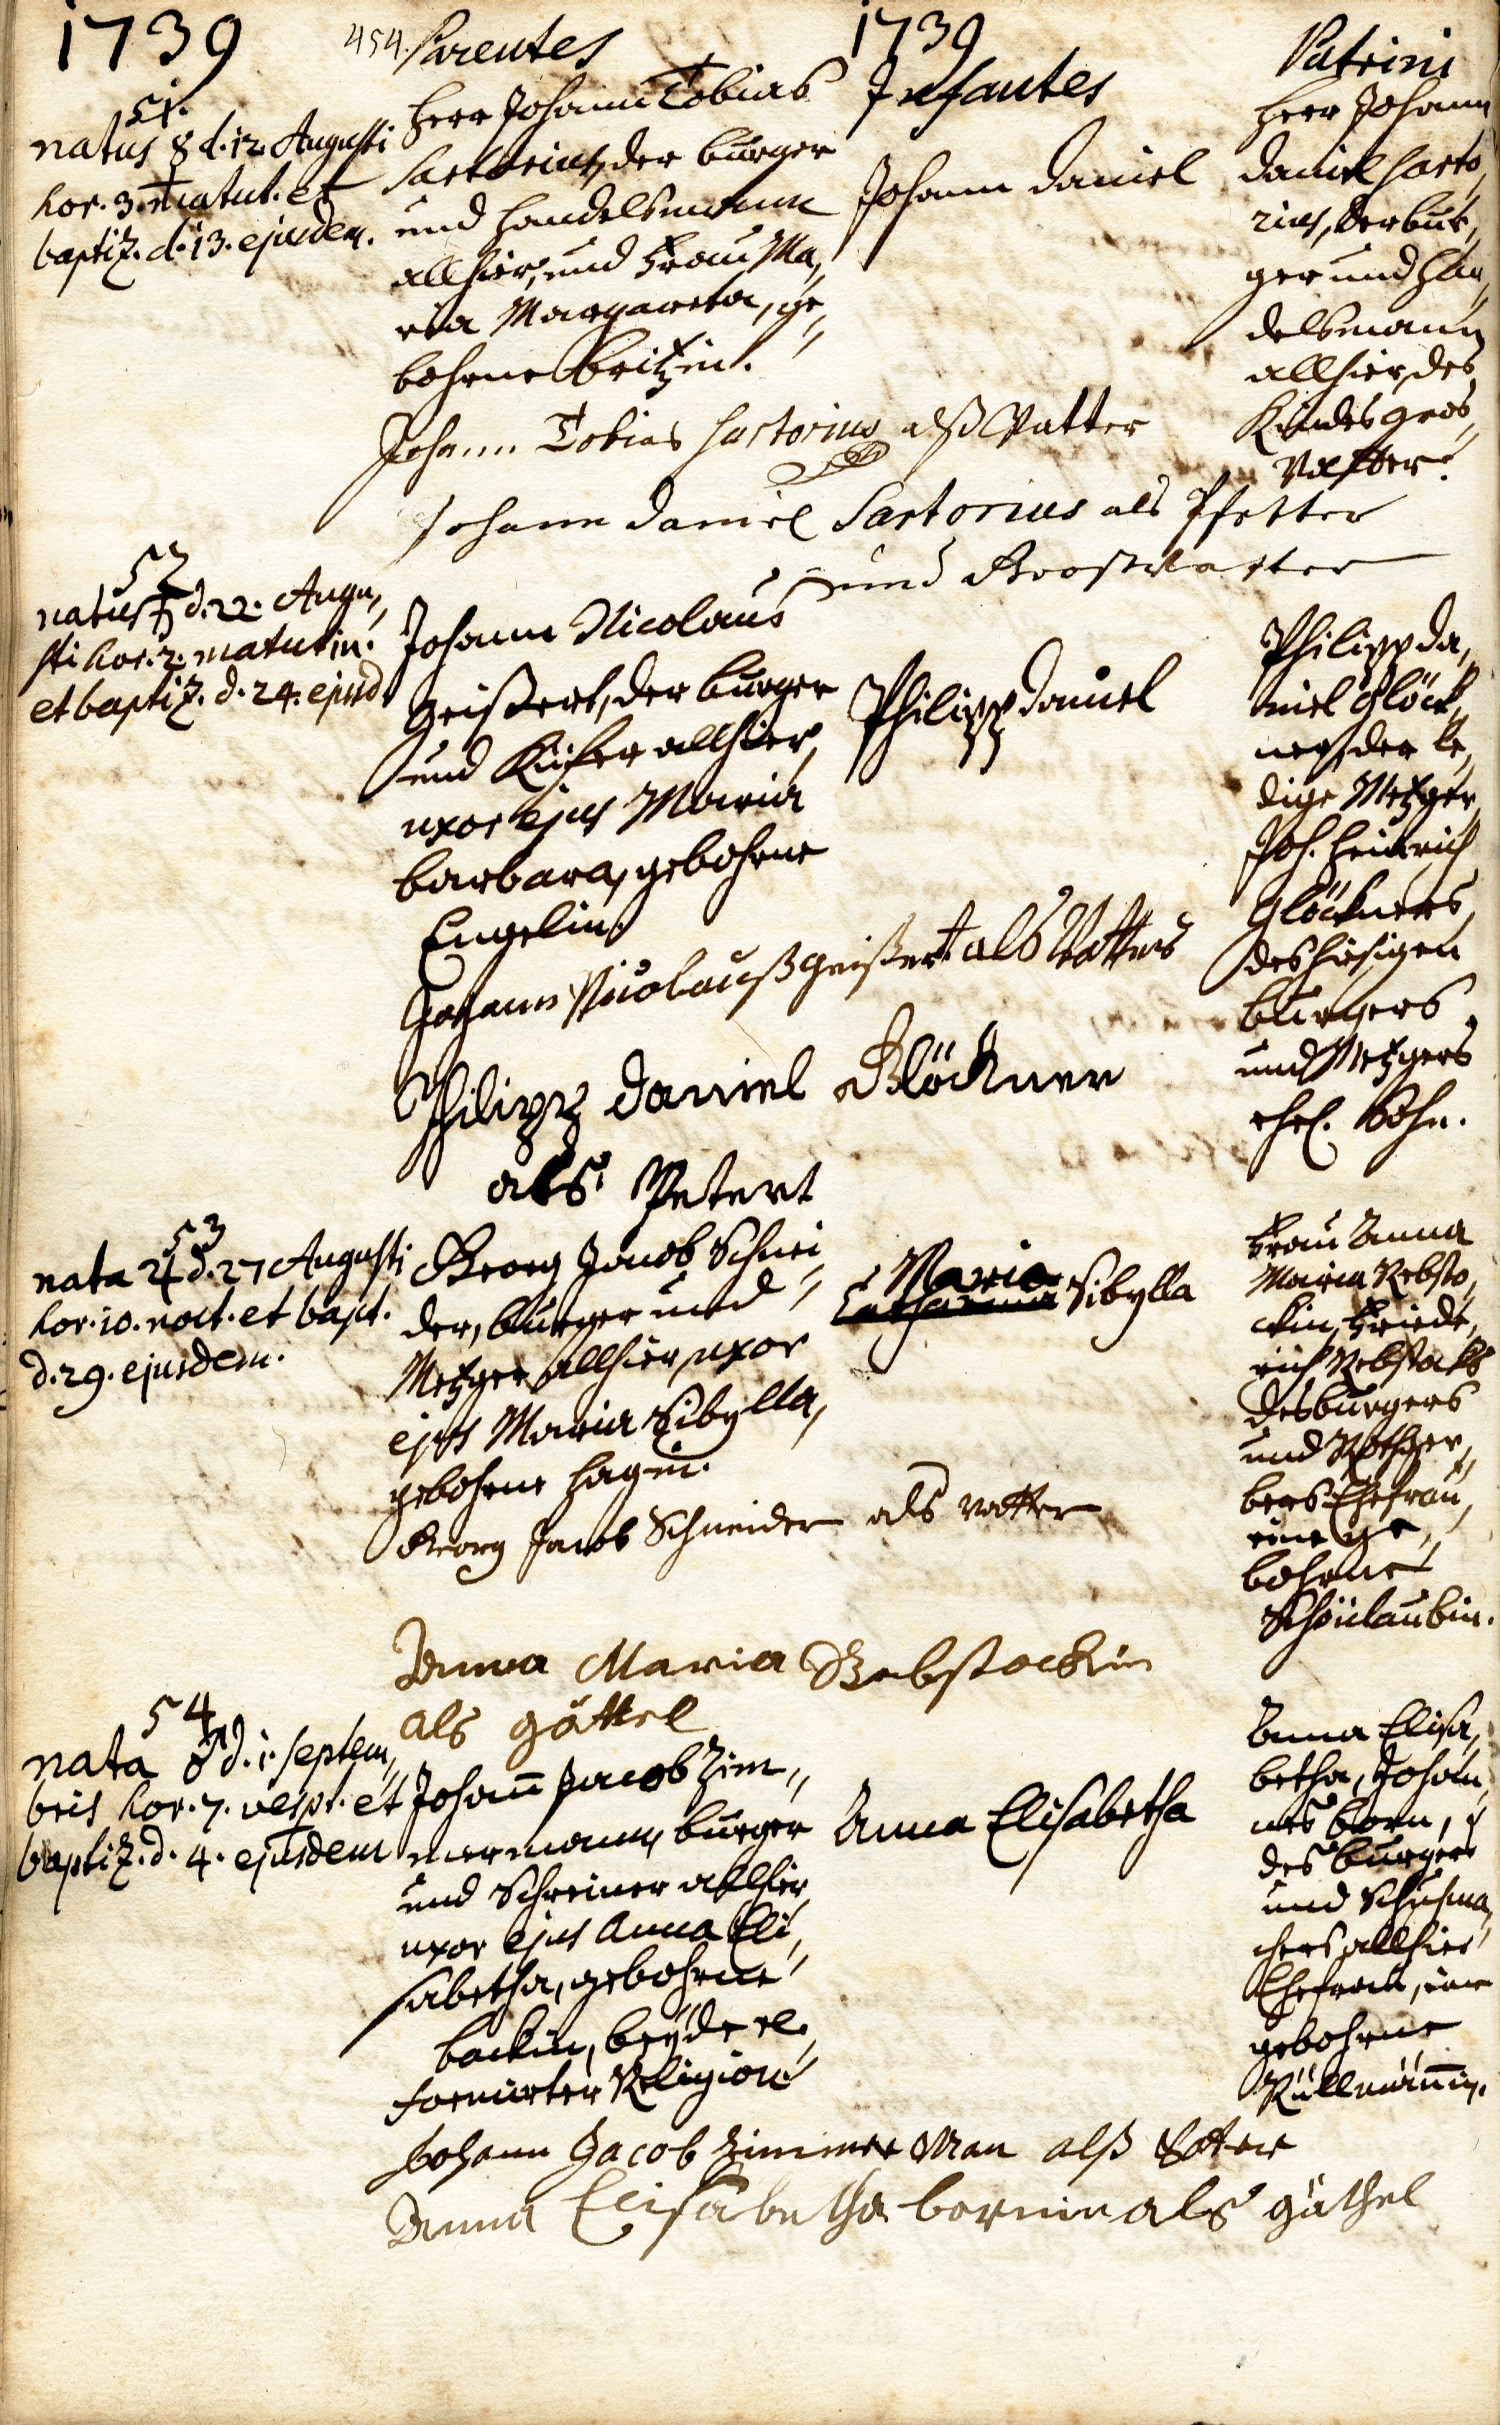 1739
454.
Parentes
1739
Infantes
Patrini
51.
natus ☿ d. 12. Augusti
hor. 3. matut. et
baptiz. d. 13. ejusdem.
Herr Johann Tobias
Sartorius, der burger
und handelsmann
allhier, und Frau Ma„
ria Margareta, ge„
bohrne Britzin.
Johann Daniel
Herr Johann
Daniel Sarto„
rius, der bur„
ger und han„
delsmann
allhier, des
Kindes gros„
Vatter.
Johann Tobias Sartorius alß Vatter
Johann Daniel Sartorius als Pfetter
und Grosvatter
52
natus ♄ d. 22. Augu„
sti hor. 2. matutin.
et baptiz. d. 24. ejusd.
Johann Nicolaus
Geißert, der burger
und Küfer allhier,
uxor ejus Maria
barbara, gebohrne
Engelin.
Philipp Daniel
Philipp Da„
niel Glöck„
ner, der le„
dige Metzger,
Joh. Heinrich
Glöckners,
des hiesigen
burgers
und Metzgers
ehel. Sohn.
Johann Nicolauß Geißert als Vatters
Philipp Daniel Glöckner
als Petert
53
nata ♃ d. 27 Augusti
hor. 10. noct. et bapt.
d. 29. ejusdem.
Georg Jacob Schnei„
der, burger und
Metzger allhier, uxor
ejus Maria Sibylla,
gebohrne Hagin.
Maria
Catharina Sibylla
Frau Anna
Maria Rebsto„
ckin, Friede„
rich Rebstocks
des burgers
und Rothger„
bers Ehefrau,
eine ge„
bohrne
Schönlaubin.
Georg Jacob Schneider als vatter
Anna Maria Rebstockin
als göttel
54
nata ♂ d. 1. Septem„
bris hor. 7. vesp. et
baptiz. d. 4. ejusdem
Johan̅ Jacob Zim„
mermann, burger
und Schreiner allhier,
uxor ejus Anna Eli„
sabetha, gebohrne
backin, beÿde re„
formirter Religion
Anna Elisabetha
Anna Elisa„
betha, Johan„
nes Born,
des burgers
und Schuhma„
chers allhier
Ehefrau, eine
gebohrne
Küllmän̅in.
Johann Jacob Zimmer Man alß Vatter
Anna Elisabetha bornin als göthel